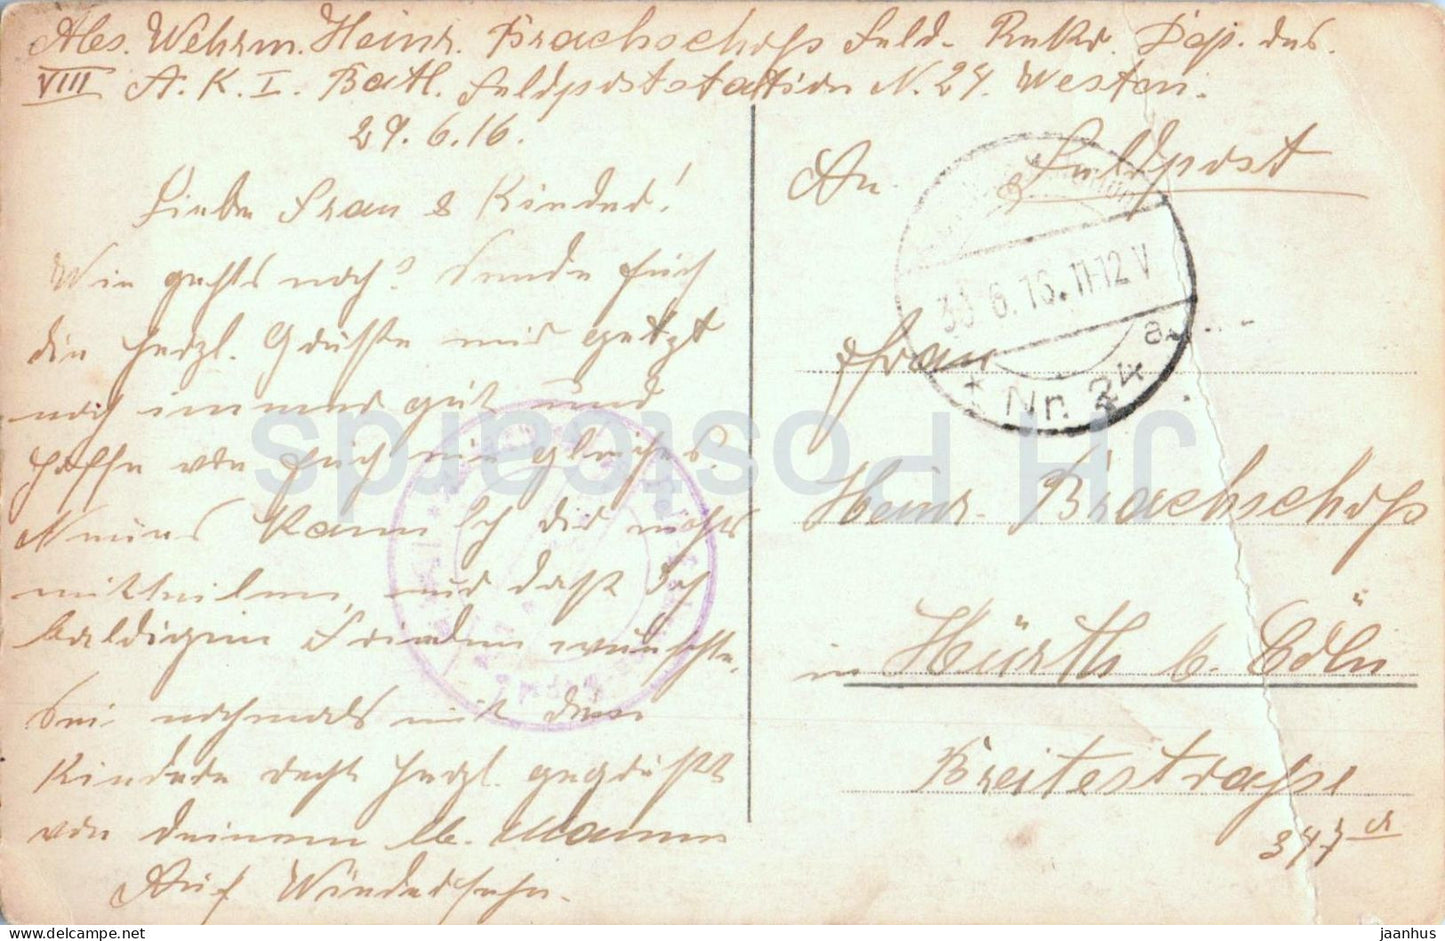 Abs. Wehrm. Heinr. Brachschoß Feld-Rekr. Dep. des.
VIII A. K. I. Batl. Feldpoststation N. 24. Westen.
29.6.16.
Liebe Frau & Kinder!
Wie gehts noch? Sende Euch
die herzl. Grüße mir geht
noch immer gut und
hoffe von Euch ein gleiches.
Neues kann ich dir nichts
mitteilen, nur daß ich
baldigen Frieden wünschte.
Sei nochmals mit den
Kinder recht herzl. gegrüßt
von deinem lb. Manne
Auf Wiedersehn.
An.
Feldpost
Frau
Heinr. Brachschoß
in Hürth b. Cöln
Breitestraße
347 a
30.6.16.11-12 V
a
* Nr. 24 *
JH Postcards
jaanhus © delcampe.net